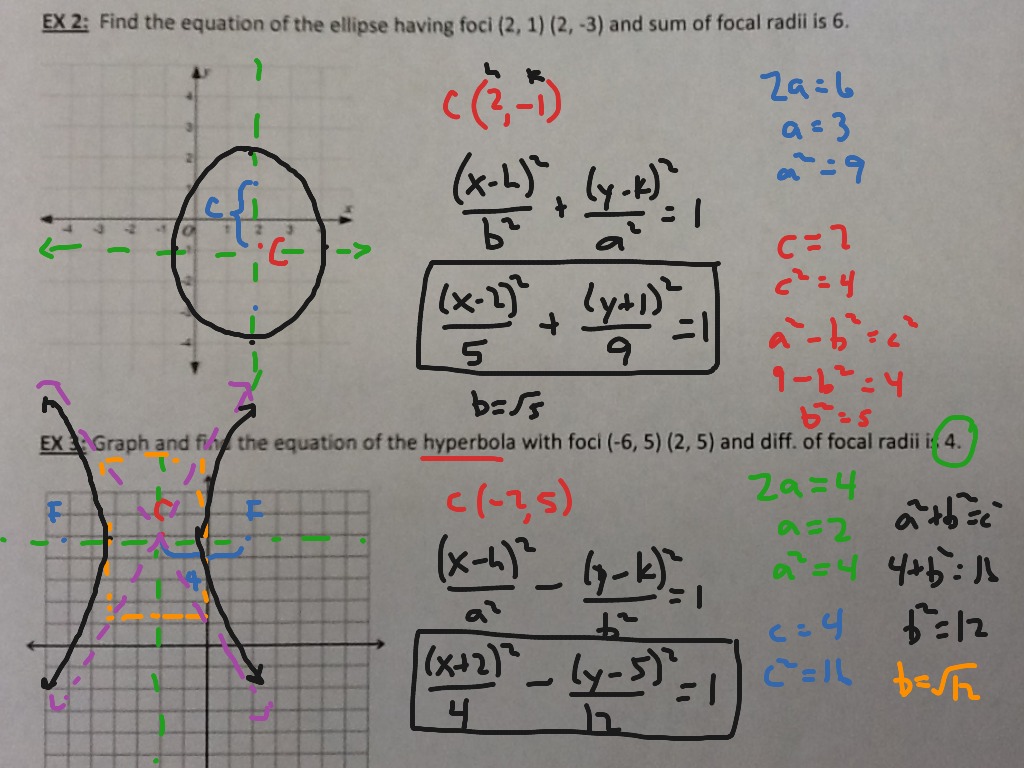 EX 2: Find the equation of the ellipse having foci (2, 1) (2, -3) and sum of focal radii is 6.
y
4
3
2
C
x
-4 -3 -2 -1 O 1 2 3
C
-1
-2
-3
-4
h k
C (2, -1)
(x-h)² / b² + (y-k)² / a² = 1
(x-2)² / 5 + (y+1)² / 9 = 1
b=√5
2a=6
a=3
a²=9
c=2
c²=4
a²-b²=c²
9-b²=4
b²=5
EX 3: Graph and find the equation of the hyperbola with foci (-6, 5) (2, 5) and diff. of focal radii is 4.
F C F
4
C(-2,5)
(x-h)² / a² - (y-k)² / b² = 1
(x+2)² / 4 - (y-5)² / 12 = 1
2a=4
a=2
a²=4
c=4
c²=16
a²+b²=c²
4+b²=16
b²=12
b=√12